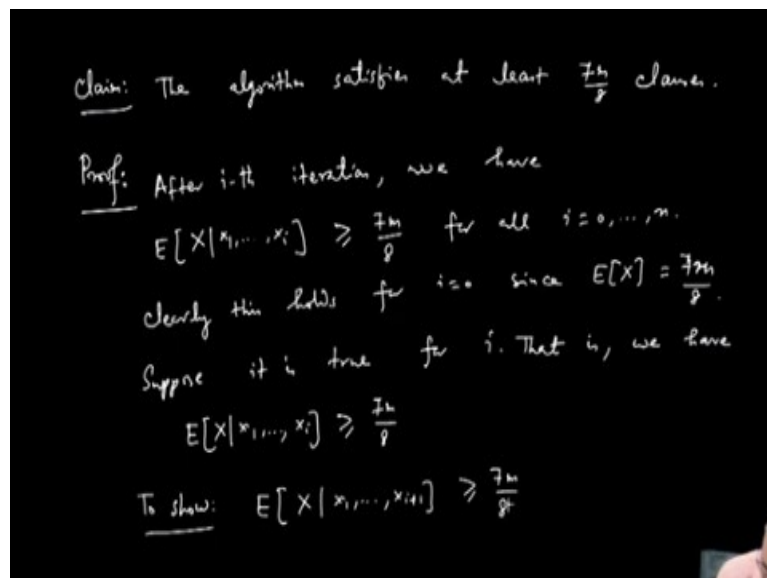 Claim: The algorithm satisfies at least 7m/8 clauses.
Proof: After i-th iteration, we have
E[X|x₁,...,xᵢ] ⩾ 7m/8 for all i=0,...,n.
Clearly this holds for i=0 since E[X] = 7m/8.
Suppose it is true for i. That is, we have
E[X|x₁,...,xᵢ] ⩾ 7m/8
To show: E[X|x₁,...,xᵢ₊₁] ⩾ 7m/8